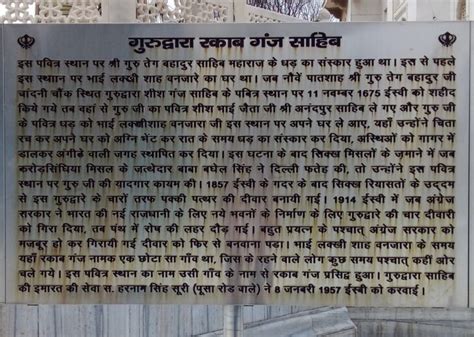 गुरुद्वारा रकाब गंज साहिब
इस पवित्र स्थान पर श्री गुरु तेग बहादुर साहिब महाराज के धड़ का संस्कार हुआ था। इस से पहले
इस स्थान पर भाई लक्खी शाह वनजारा का घर था। जब नौवें पातशाह श्री गुरु तेग बहादुर जी
चांदनी चौंक स्थित गुरुद्वारा शीश गंज साहिब के पवित्र स्थान पर 11 नवम्बर 1675 ईस्वी को शहीद
किये गये तब वहां से गुरु जी का पवित्र शीश भाई जैता जी श्री आनंदपुर साहिब ले गए और गुरु जी
के पवित्र धड़ को भाई लक्खीशाह वनजारा जी इस स्थान पर अपने घर ले आए, यहाँ उन्होंने चिता
रच कर अपने घर को अग्नि भेंट कर रात के समय धड़ का संस्कार कर दिया, अस्थिओं को गागर में
डालकर अंगीठे वाली जगह स्थापित कर दिया। इस घटना के बाद सिक्ख मिसलों के जमाने में जब
करोड़सिंघिया मिसल के जत्थेदार बाबा बघेल सिंह ने दिल्ली फतेह की, तो उन्होंने इस पवित्र
स्थान पर गुरु जी की यादगार कायम की। 1857 ईस्वी के गदर के बाद सिक्ख रियासतों के उद्दम
से इस गुरुद्वारे के चारों तरफ पक्की पत्थर की दीवार बनायी गई। 1914 ईस्वी में जब अंग्रेज
सरकार ने भारत की नई राजधानी के लिए नये भवनों के निर्माण के लिए गुरुद्वारे की चार दीवारी
को गिरा दिया, तब पंथ में रोष की लहर दौड़ गई। बहुत प्रयत्न के पश्चात् अंग्रेज सरकार को
मजबूर हो कर गिरायी गई दीवार को फिर से बनवाना पडा। भाई लक्खी शाह वनजारा के समय
यहाँ रकाब गंज नामक एक छोटा सा गाँव था, जिस के रहने वाले लोग कुछ समय पश्चात् कहीं ओर
चले गये। इस पवित्र स्थान का नाम उसी गाँव के नाम से रकाब गंज प्रसिद्व हुआ। गुरुद्वारा साहिब
की इमारत की सेवा स. हरनाम सिंह सूरी (पूसा रोड वाले) ने 8 जनवरी 1957 ईस्वी को करवाई।